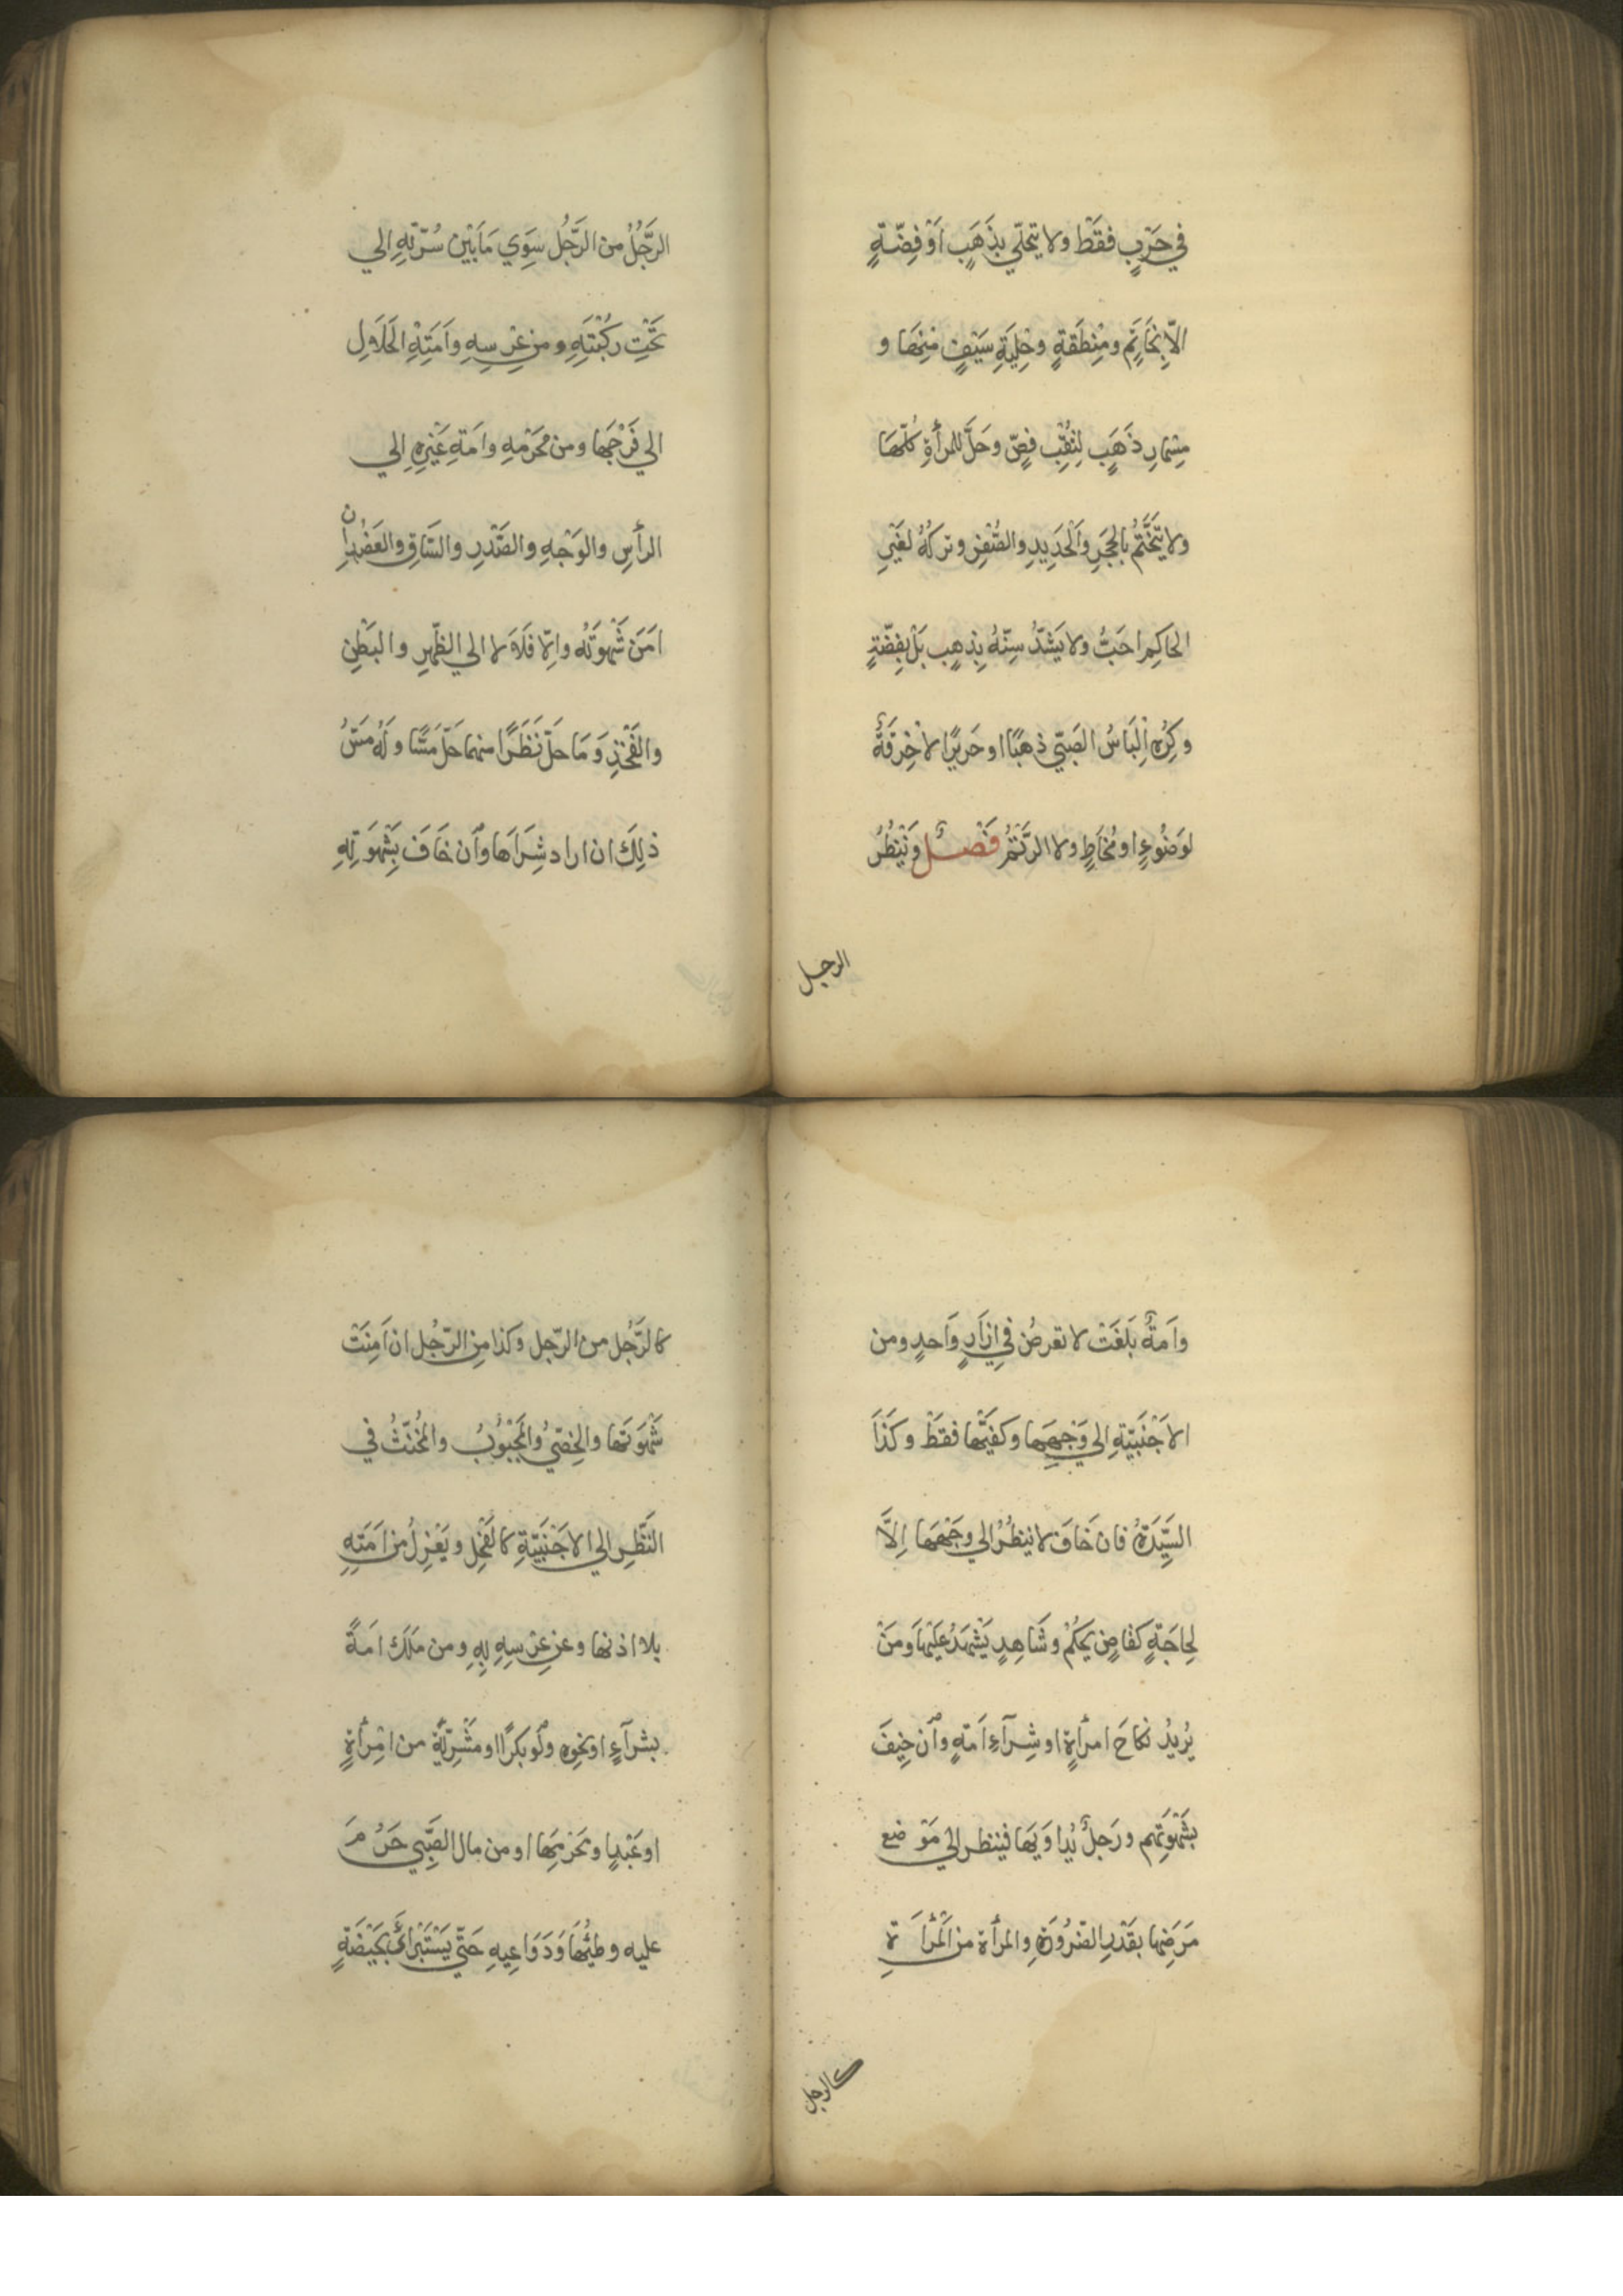 في حَرْبٍ فقَطْ ولا يتحلّي بذَهَبٍ اَوْ فِضّةٍ
الّا بِخَاتَمٍ ومِنْطَقةٍ وحِلْيَةِ سَيْفٍ مِنْهَا و
مِسْمارِ ذَهَبٍ لِثَقْبِ فَصٍّ وحَلَّ للمرأةِ كلّهَا
ولا يَتَخَتَّمُ بالحجَرِ وَالْحَدِيدِ والصُّفْرِ وتركُهُ لغَيْرِ
الحاكِمِ احَبُّ ولا يَشدُّ سِنّهُ بذهبٍ بَلْ بفِضّةٍ
وكُرِهَ اِلْبَاسُ الصَبيّ ذهَبًا اوحَريرًا لا خِرْقَةٌ
لوَضُوءٍ اومُخَاطٍ ولا الرَّتَمُ فَصْلٌ وَيَنْظُرُ
الرجل
الرَّجُلُ من الرَّجُلِ سِوَي مَا بَيْنَ سُرّتهِ الي
تَحْتِ رُكْبَتَهِ ومن عِرْسِهِ واَمَتِهِ الحَلَالِ
الي فَرْجِهَا ومن مَحْرَمهِ وامَةِ غَيْرِهِ الي
الرأسِ والوَجْهِ والصَّدْرِ والسَّاقِ والعَضُدِ ان
اَمَنَ شَهْوَتَهُ والّا فَلَا لا الي الظّهرِ والبَطْنِ
والفَخْذِ وَمَا حَلّ نَظَرًا منهما حَلّ مَسًّا وَلَهُ مَسُّ
ذلِكَ ان اراد شِرَاهَا وَاِن خَافَ بِشَهْوَتِهِ
واَمةٌ بَلغَتْ لا تعرضُ في اِزَارٍ وَاحدٍ ومن
الاَجْنَبيّةِ الي وَجْهِهَا وكفَّيْهَا فقَطْ وكَذَا
السَّيِّدَةُ فان خَافَ لا ينظُرُ الي وَجْهِهَا اِلَّا
لِحاجَةٍ كقاضٍ يحكُمُ وشَاهِدٍ يَشْهَدُ عَلَيْهَا وَمَنْ
يُريدُ نكاحَ امرأةٍ اوشِرآءِ اَمَةٍ واِن خِيفَ
بشَهْوتِهِم ورَجلٌ يُدَاوِيهَا فينظر الي مَوْضع
مَرَضِهَا بقَدْرِ الضّرُورَةِ والمرأة من الْمَرْأَةِ
كالرجل
كالرَّجُل من الرّجل وكذا مِنِ الرّجُل ان اَمِنَتْ
شَهْوَتَهَا والخَصِيُّ وَالمَجْبُوبُ والمُخَنّثُ في
النَّظَرِ الي الاجْنَبيّةِ كالفَحْلِ ويَعْزِلُ من اَمَتِهِ
بلا اذنها وعن عِرْسِهِ بِهِ ومن مَلَكَ اَمَةً
بشرآءٍ اونحوهِ ولَو بكرًا اومَشْرِيّةٌ من امْرأةٍ
اوعَبْدٍ اومَحْرمِهَا اومن مال الصَّبِّي حَرُمَ
عليه وطئُها وَدَوَاعِيهِ حَتّي يَسْتَبْرأَي بحَيْضَةٍ